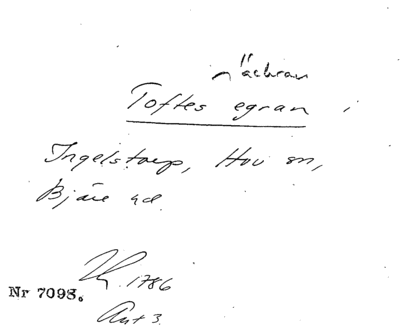 äckran
Toftes egran
Ingelstorp, Hov sn,
Bjäre hd.
1786
Nr 7098.
Akt 3.